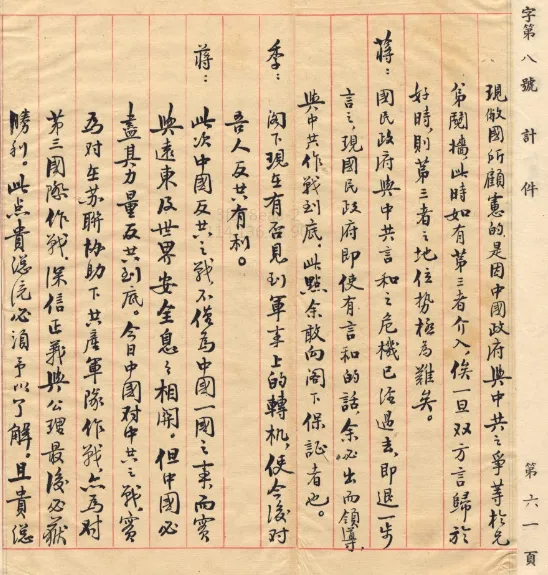 字第八號計件
第六一頁
現敝國所顧憲的是因中國政府與中共之爭等於兄
弟鬩牆,此時如有第三者介入,俟一旦双方言歸於
好時,則第三者之地位势極為難矣。
蔣:國民政府與中共言和之危機已洽過去,即退一步
言之,現國民政府即使有言和的話,余必出而領導,
與中共作戰到底,此點余敢向阁下保証者也。
季:阁下現在有否見到軍事上的轉机,使今後对
吾人反共有利。
蔣:此次中國反共之战不僅為中國一國之事,而實
與遠東及世界安全息之相關。但中國必
盡其力量反共到底。今日中國对中共之战,實
為对在苏聯協助下共產軍隊作戰,亦為对
第三國際作戰,深信正義與公理最後必獲
勝利。此点貴總統必須予以了解。且貴總